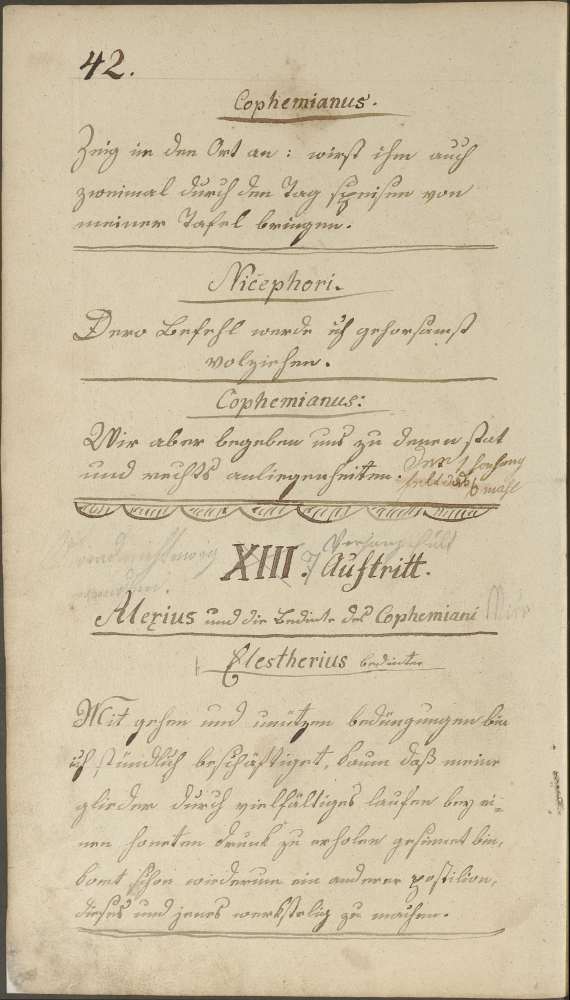 42.
Cophemianus.
Zeig im den Ort an: wirst ihm auch
zweimal durch den Tag speisen von
meiner Tafel bringen.
Nicephori.
Dero Befehl werde ich gehorsamst
volziehen.
Cophemianus:
Wir aber begeben uns zu denen stat
und rechts anliegenheiten.
Der Forhang
felt das 6 mahl
XIII. 7 Auftritt.
Alexius und die Bediente des Cophemiani
Elestherius bedienter
Mit gehen und unützen bedingungen bin
ich stündlich beschäftiget, kaum daß meine
glieder durch vielfältiges laufen bey ei-
nen honeten trunk zu erholen gesinnet bin,
komt schon wiederum ein anderer postilion,
dieses und jenes werkstelig zu machen.